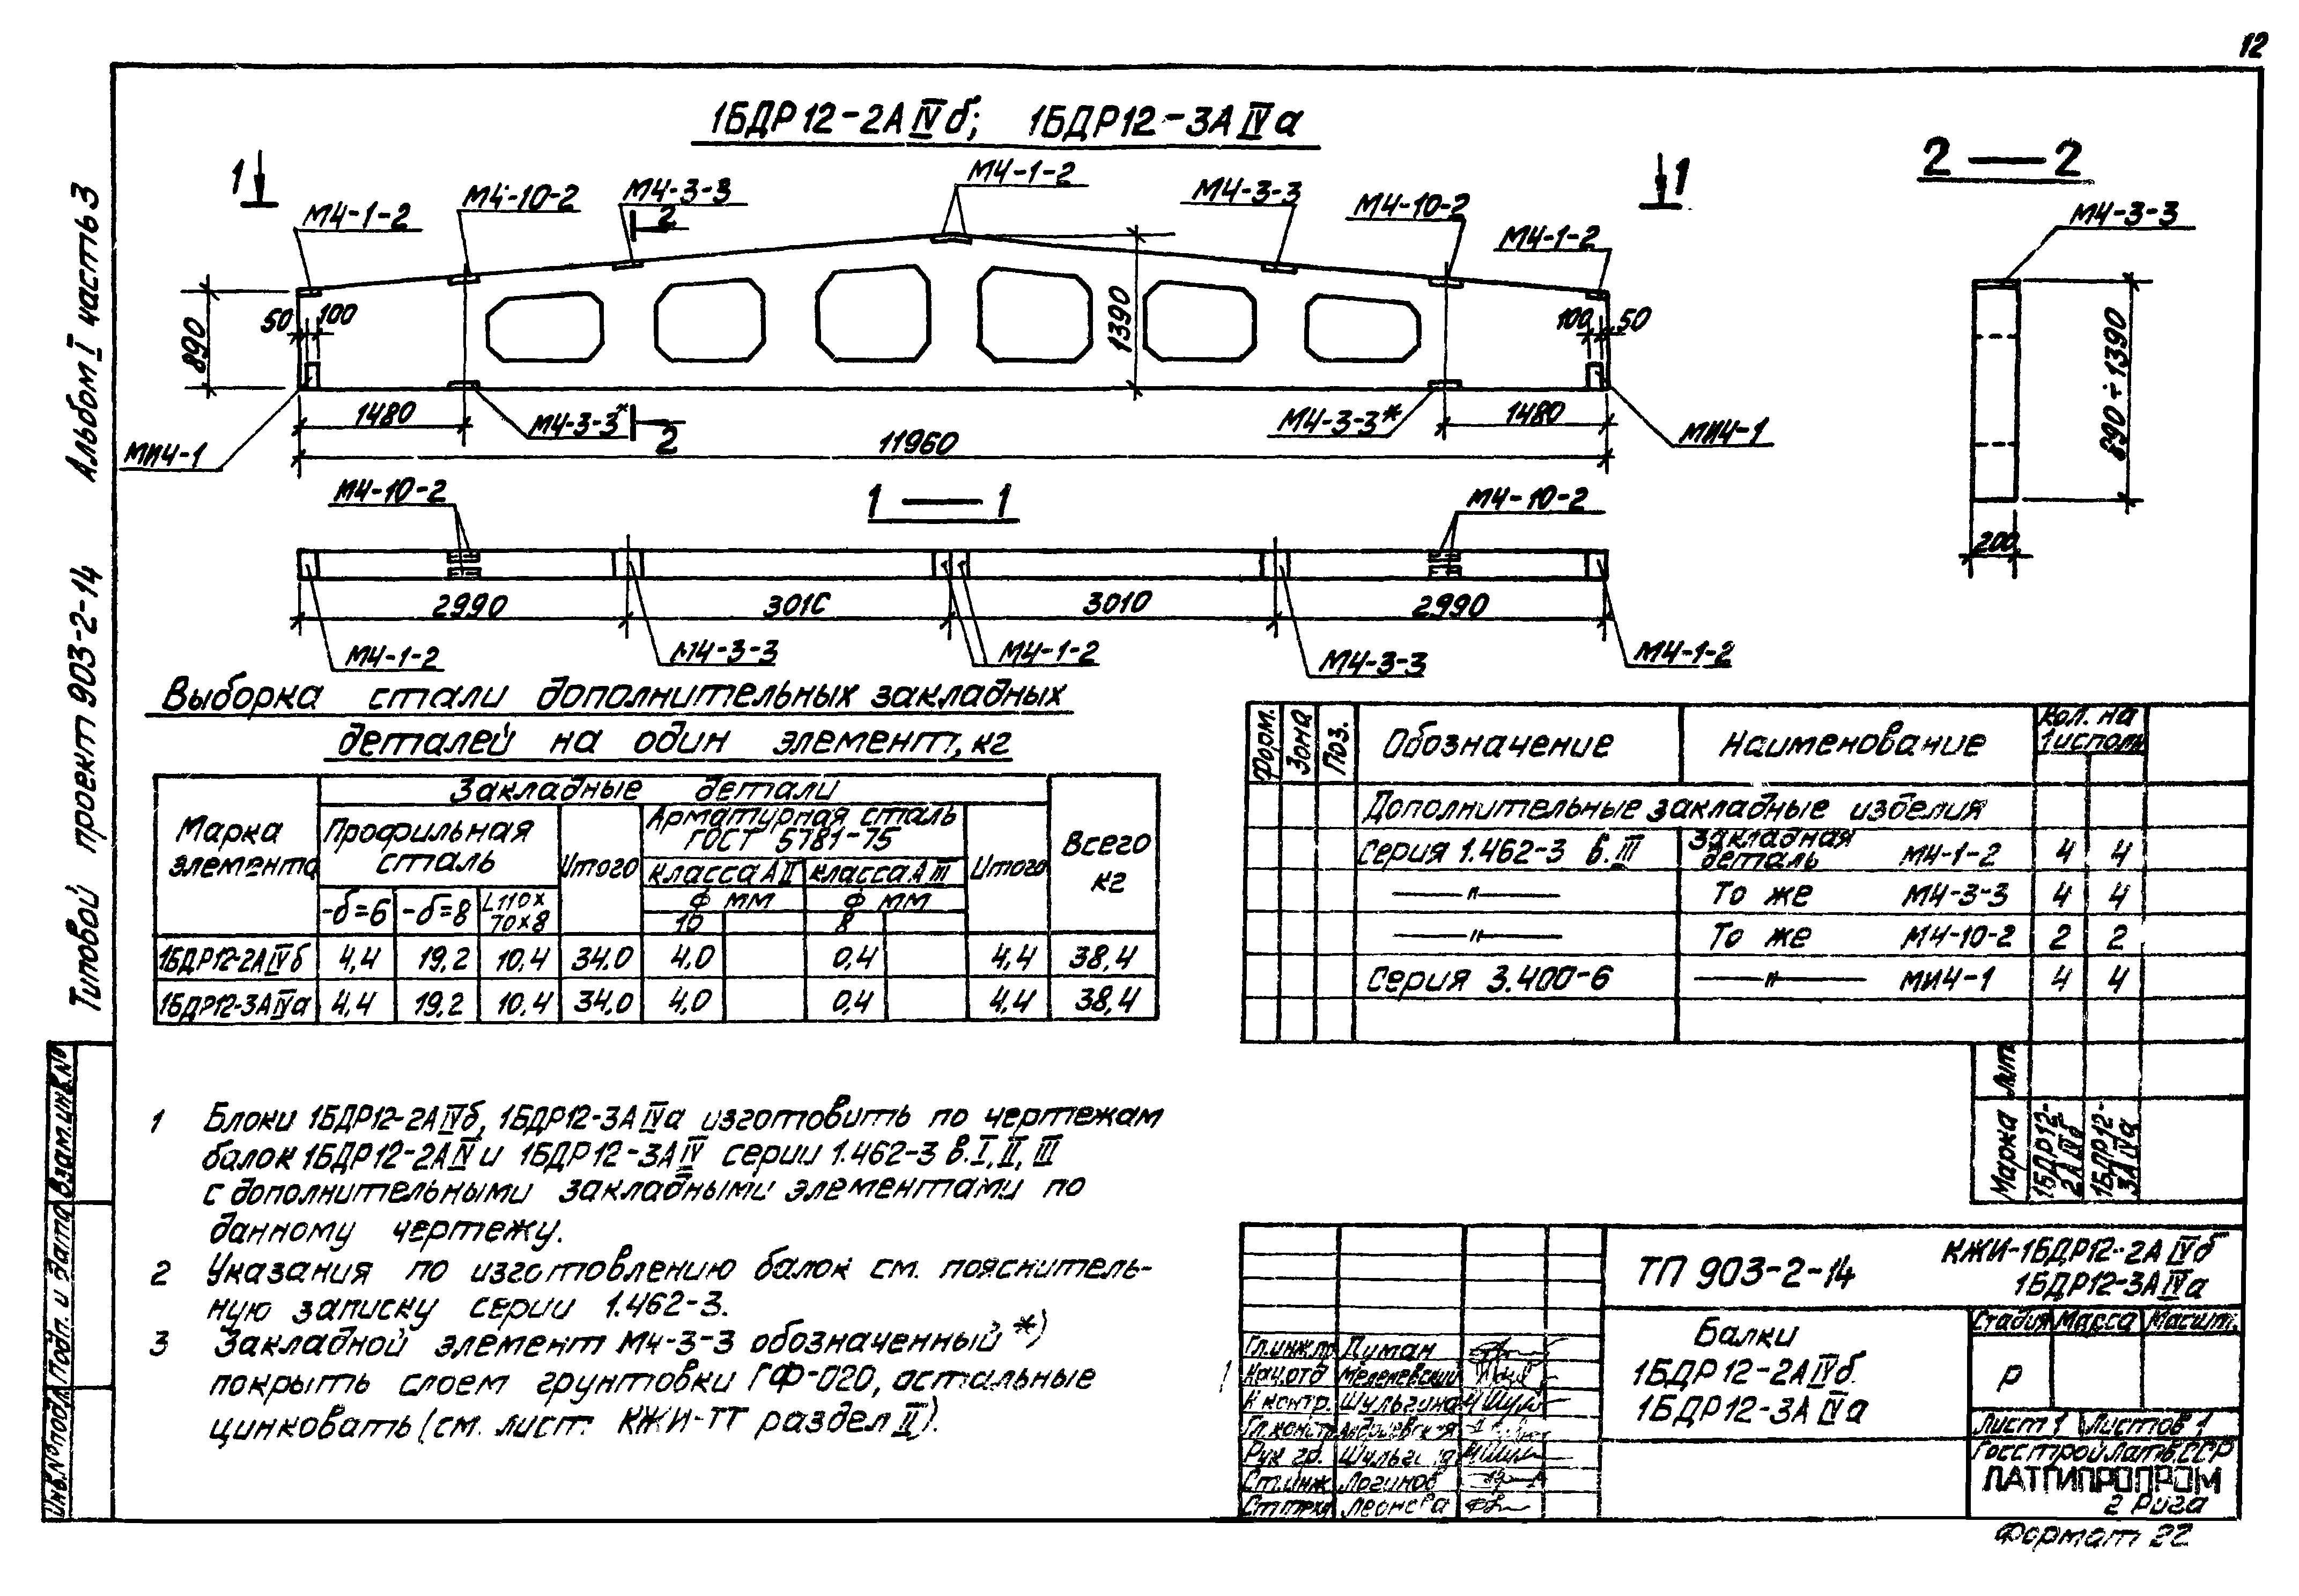 12
Альбом I часть 3
Типовой проект 903-2-14
1БДР12-2АIVб; 1БДР12-3АIVа
1
М4-1-2
М4-10-2
М4-3-3
2
М4-1-2
М4-3-3
М4-10-2
М4-1-2
1
890
50
100
1390
100
50
1480
М4-3-3*
2
М4-3-3*
1480
МИ4-1
11960
МИ4-1
2 — 2
М4-3-3
890÷1390
200
1 — 1
М4-10-2
М4-10-2
2990
3010
3010
2990
М4-1-2
М4-3-3
М4-1-2
М4-3-3
М4-1-2
Выборка стали дополнительных закладных
деталей на один элемент, кг
Марка элемента
Закладные детали
Всего кг
Профильная сталь
Итого
Арматурная сталь ГОСТ 5781-75
Итого
класса АII
класса АIII
-δ=6
-δ=8
L110х70х8
ф мм
ф мм
10
8
1БДР12-2АIVб 4,4 19,2 10,4 34.0 4.0 0,4 4,4 38,4
1БДР12-3АIVа 4,4 19,2 10,4 34.0 4.0 0,4 4,4 38,4
Форм.
Зона
Поз.
Обозначение
Наименование
Кол. на
1исполн
Дополнительные закладные изделия
Серия 1.462-3 в.III Закладная деталь М4-1-2 4 4
—"— То же М4-3-3 4 4
—"— То же М4-10-2 2 2
Серия 3.400-6 —"— МИ4-1 4 4
Марка
Лит
1БДР12-
2АIVб
1БДР12-
3АIVа
1 Блоки 1БДР12-2АIVб, 1БДР12-3АIVа изготовить по чертежам
балок 1БДР12-2АIV и 1БДР12-3АIV серии 1.462-3 в.I, II, III
с дополнительными закладными элементами по
данному чертежу.
2 Указания по изготовлению балок см. пояснитель-
ную записку серии 1.462-3.
3 Закладной элемент М4-3-3 обозначенный *)
покрыть слоем грунтовки ГФ-020, остальные
цинковать (см. лист КЖИ-ТТ раздел II).
Взам.инв.№
Подп. и дата
Инв.№ подл.
ТП 903-2-14
КЖИ-1БДР12-2АIVб
1БДР12-3АIVа
Гл.инж.пр. Думан
Нач.отд
К контр. Шульгина
Гл.констр.
Рук гр.
Ст.инж Логинов
Ст.техн Леонова
Балки
1БДР12-2АIVб
1БДР12-3АIVа
Стадия Масса Масшт.
Р
Лист 1 Листов 1
Госстрой Латв.ССР
ЛАТГИПРОПРОМ
г Рига
Формат 22